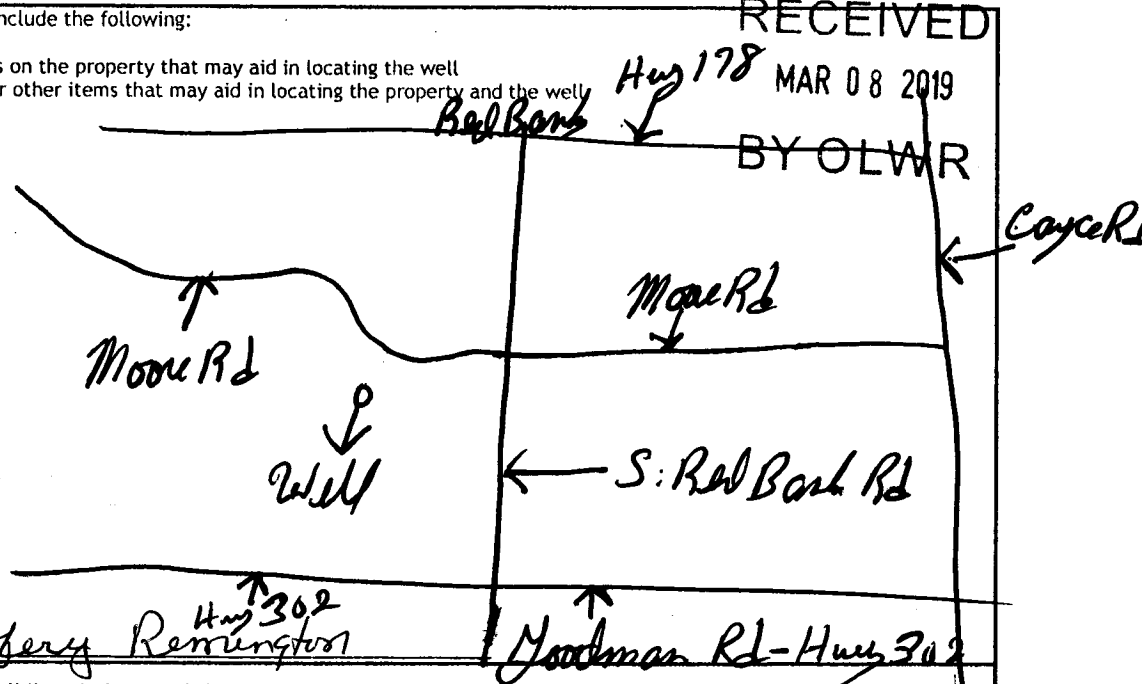 nclude the following:
RECEIVED
s on the property that may aid in locating the well
r other items that may aid in locating the property and the well
Hwy 178
MAR 08 2019
Red Bank
BY OLWR
Cayce Rd
Moore Rd
Moore Rd
Well
S. Red Bank Rd
Hwy 302
Remington
Goodman Rd-Hwy 302